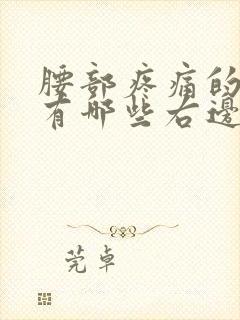 腰部疼痛的
有哪些右邊
莞卓